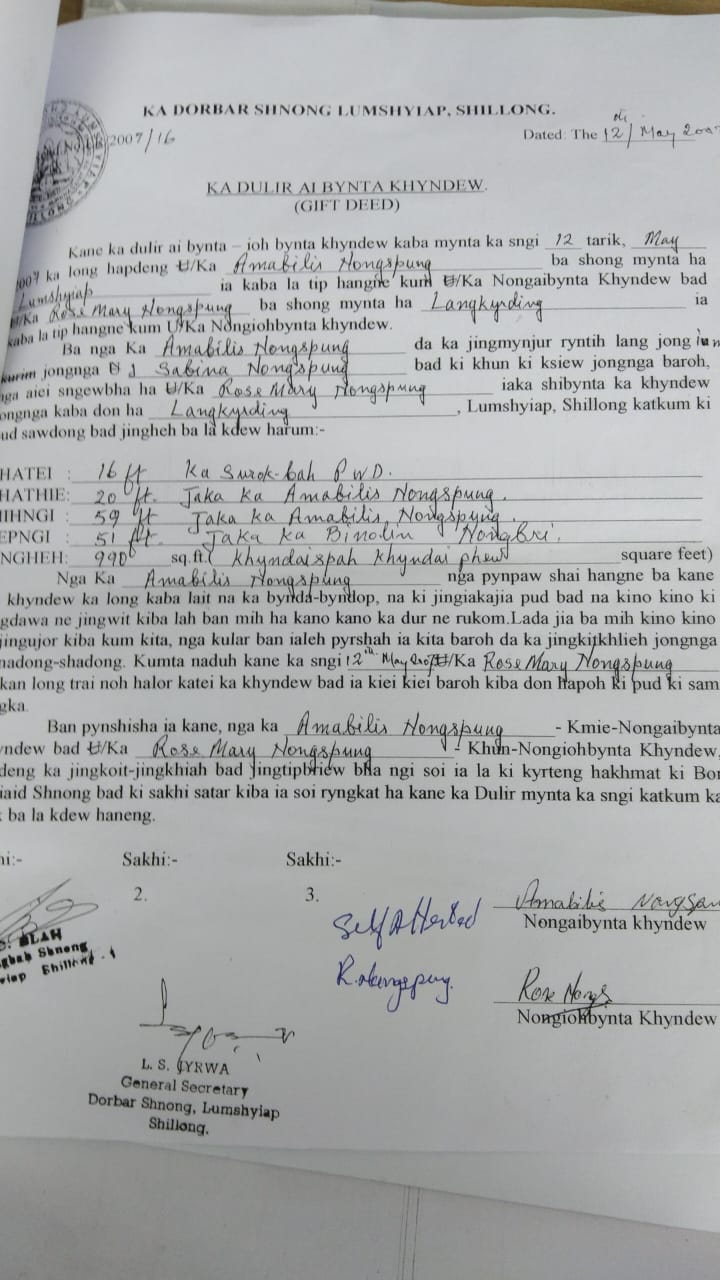 KA DORBAR SHNONG LUMSHYIAP, SHILLONG.
2007/16
Dated: The 12th/ May 200
KA DULIR AI BYNTA KHYNDEW.
(GIFT DEED)
Kane ka dulir ai bynta – ioh bynta khyndew kaba mynta ka sngi 12 tarik, May
2007 ka long hapdeng U/Ka Amabilis Nongspung ba shong mynta ha
Lumshyiap ia kaba la tip hangne kum U/Ka Nongaibynta Khyndew bad
U/Ka Rose Mary Nongspung ba shong mynta ha Langkyrding ia
kaba la tip hangne kum U/Ka Nongiohbynta khyndew.
Ba nga Ka Amabilis Nongspung da ka jingmynjur ryntih lang jong
kurim jongnga Sabina Nongspung bad ki khun ki ksiew jongnga baroh,
nga aiei sngewbha ha U/Ka Rose Mary Nongspung iaka shibynta ka khyndew
ongnga kaba don ha Langkyrding, Lumshyiap, Shillong katkum ki
ud sawdong bad jingheh ba la kdew harum:-
HATEI : 16 ft Ka Surok-bah PWD.
HATHIE: 20 ft. Jaka ka Amabilis Nongspung.
IHNGI : 59 ft Jaka ka Amabilis Nongspung.
EPNGI : 51 ft. Jaka ka Binolin Nongbri.
NGHEH: 990 sq.ft.( khyndaispah khyndai phew square feet)
Nga Ka Amabilis Nongspung nga pynpaw shai hangne ba kane
khyndew ka long kaba lait na ka bynda-byndop, na ki jingiakajia pud bad na kino kino ki
gdawa ne jingwit kiba lah ban mih ha kano kano ka dur ne rukom.Lada jia ba mih kino kino
jingujor kiba kum kita, nga kular ban ialeh pyrshah ia kita baroh da ka jingkitkhlieh jongnga
hadong-shadong. Kumta naduh kane ka sngi 12th May 2007 U/Ka Rose Mary Nongspung
kan long trai noh halor katei ka khyndew bad ia kiei kiei baroh kiba don hapoh ki pud ki sam
gka.
Ban pynshisha ia kane, nga ka Amabilis Nongspung - Kmie-Nongaibynta
yndew bad U/Ka Rose Mary Nongspung - Khun-Nongiohbynta Khyndew,
deng ka jingkoit-jingkhiah bad jingtipbriew bha ngi soi ia la ki kyrteng hakhmat ki Bor
iaid Shnong bad ki sakhi satar kiba ia soi ryngkat ha kane ka Dulir mynta ka sngi katkum ka
ba la kdew haneng.
hi:- Sakhi:- Sakhi:-
2. 3.
Amabilis Nongspun
Nongaibynta khyndew
Self Attested
R. Nongspung.
BLAH
gbah Shnong
yiap Shillong - 4
Rose Nongs
Nongiohbynta Khyndew
L. S. SYRWA
General Secretary
Dorbar Shnong, Lumshyiap
Shillong.